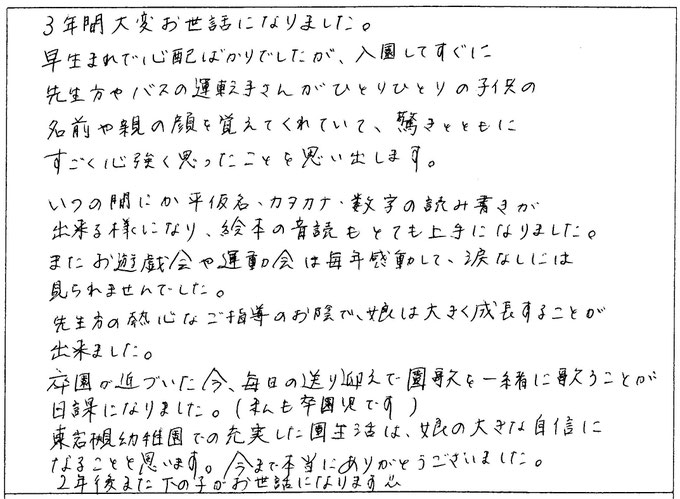 3年間大変お世話になりました。
早生まれで心配ばかりでしたが、入園してすぐに
先生方やバスの運転手さんがひとりひとりの子供の
名前や親の顔を覚えてくれていて、驚きとともに
すごく心強く思ったことを思い出します。
いつの間にか平仮名・カタカナ・数字の読み書きが
出来る様になり、絵本の音読もとても上手になりました。
またお遊戯会や運動会は毎年感動して、涙なしには
見られませんでした。
先生方の熱心なご指導のお陰で、娘は大きく成長することが
出来ました。
卒園が近づいた今、毎日の送り迎えで園歌を一緒に歌うことが
日課になりました。(私も卒園児です)
東岩槻幼稚園での充実した園生活は、娘の大きな自信に
なることと思います。今まで本当にありがとうございました。
2年後また下の子がお世話になります